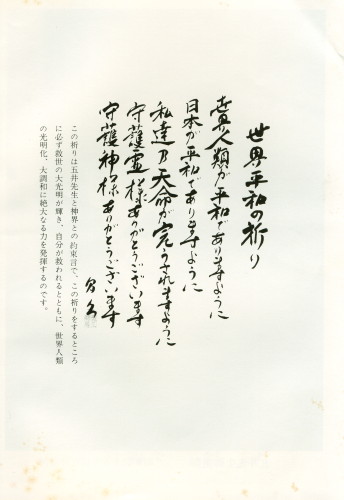 世界平和の祈り
世界人類が平和でありますように
日本が平和でありますように
私達の天命が完うされますように
守護霊様ありがとうございます
守護神様ありがとうございます
昌久
この祈りは五井先生と神界との約束言で、この祈りをするところ
に必ず救世の大光明が輝き、自分が救われるとともに、世界人類
の光明化、大調和に絶大なる力を発揮するのです。